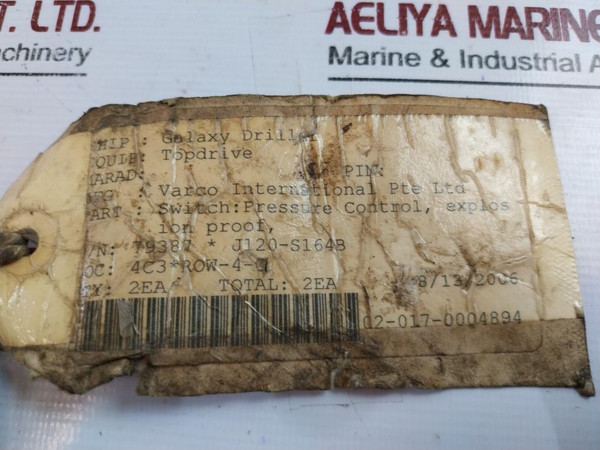 T. LTD.
achinery
AELIYA MARINE
Marine & Industrial A
HIP : Galaxy Driller
QUIP: Topdrive
ARAD: PIN:
FG : Varco International Pte Ltd
ART : Switch:Pressure Control, explos
ion proof,
/N: 79387 * J120-S164B
OC: 4C3*ROW-4-
TY: 2EA TOTAL: 2EA 8/13/2006
02-017-0004894